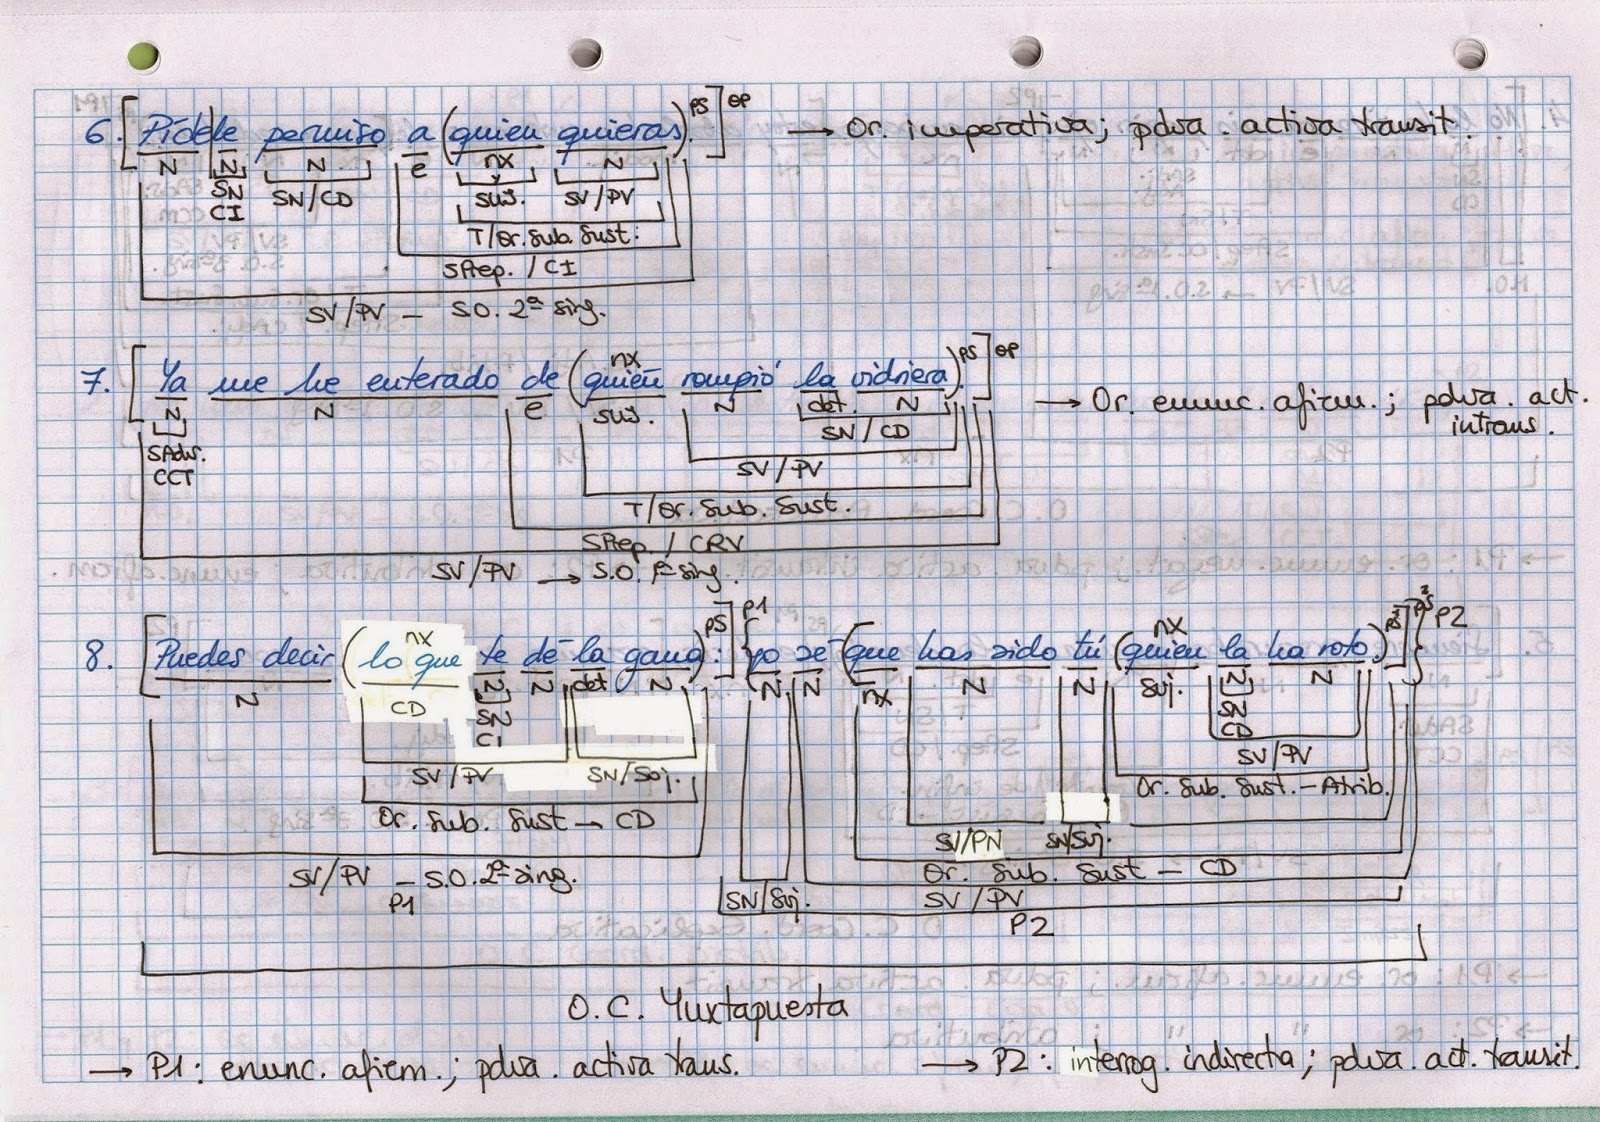 6. [Pídele permiso a (quien quieras).PS]OP → Or. imperativa; pdva. activa transit.
N N N e nx N
SN SN/CD suj. SV/PV
CI
T/Or. Sub. Sust.
SPrep. / CI
SV/PV – S.O. 2ª sing.
nx
7. [Ya me he enterado de (quién rompió la vidriera).PS]OP → Or. enunc. afirm.; pdva. act. intrans.
N N e suj. N det. N
SN/CD
SAdv. SV/PV
CCT
T/Or. Sub. Sust.
SPrep. / CRV
SV/PV → S.O. 1ª sing.
nx nx
8. [Puedes decir (lo que te dé la gana):PS]P1 {yo sé (que has sido tú (quien la ha roto).PS²]PS²}P2
N CD N N det N N N nx N N Suj. N N
SN SN
CI CD
SV/PV SN/Suj. SV/PV
Or. Sub. Sust → CD Or. Sub. Sust. – Atrib.
SV/PN SN/Suj.
SV/PV – S.O. 2ª sing. Or. Sub. Sust – CD
P1 SN/Suj. SV/PV
P2
O.C. Yuxtapuesta
→ P1: enunc. afirm.; pdva. activa trans. → P2: interrog. indirecta; pdva. act. transit.